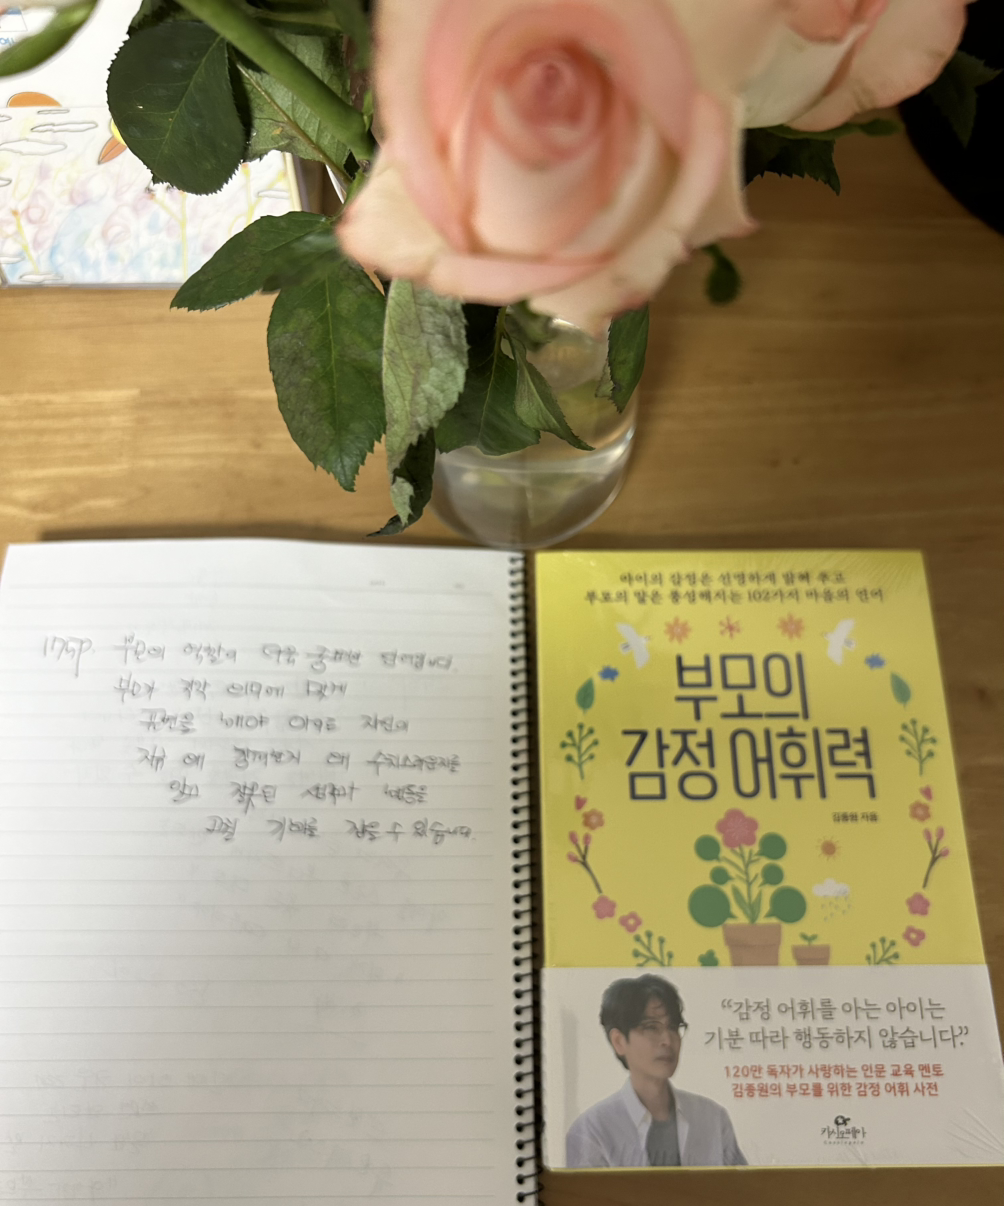 175p. 부모의 역할이 더욱 중요한 단어입니다.
부모가 적각 의미에 맞게
표현을 해야 아이도 자신이
저유에 함께한지 왜 수치스러운지를
알고 잘못된 생각과 행동을
고칠 기회를 잡을 수 있습니다.
아이의 감정은 선명하게 밝혀 주고
부모의 말은 풍성해지는 102가지 마음의 언어
부모의
감정 어휘력
김종원 지음
“감정 어휘를 아는 아이는
기분 따라 행동하지 않습니다.”
120만 독자가 사랑하는 인문 교육 멘토
김종원의 부모를 위한 감정 어휘 사전
카시오페아
Cassiopeia